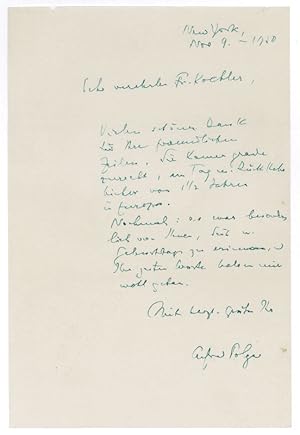 New York,
Nov 9. – 1950
Sehr verehrter Fr. Koehler,
Vielen schönen Dank
für Ihre freundlichen
Zeilen. Sie kamen gerade
zurecht, am Tag m. Rückkehr
hieher von 1½ Jahren
in Europa.
Nochmals: es war besonders
lieb von Ihnen, sich m.
Geburtstags zu erinnern, u
Ihre guten Worte haben mir
wohl getan.
Mit herzl. Grüßen Ihr
Alfred Polgar